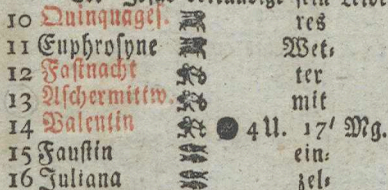 10 Quinquages. res
11 Euphrosyne Wet⸗
12 Fastnacht ter
13 Aschermittw. mit
14 Valentin 4 U. 17' Mg.
15 Faustin ein⸗
16 Juliana zel⸗